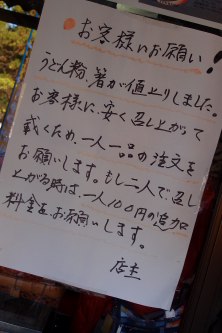 お客様にお願い!
うどん粉、箸が値上りしました。
お客様に、安く召し上がって
載くため、一人一品の注文を
お願いします。もし二人で、召し
上がる時は、一人100円の追加
料金を、お願いします。
店主